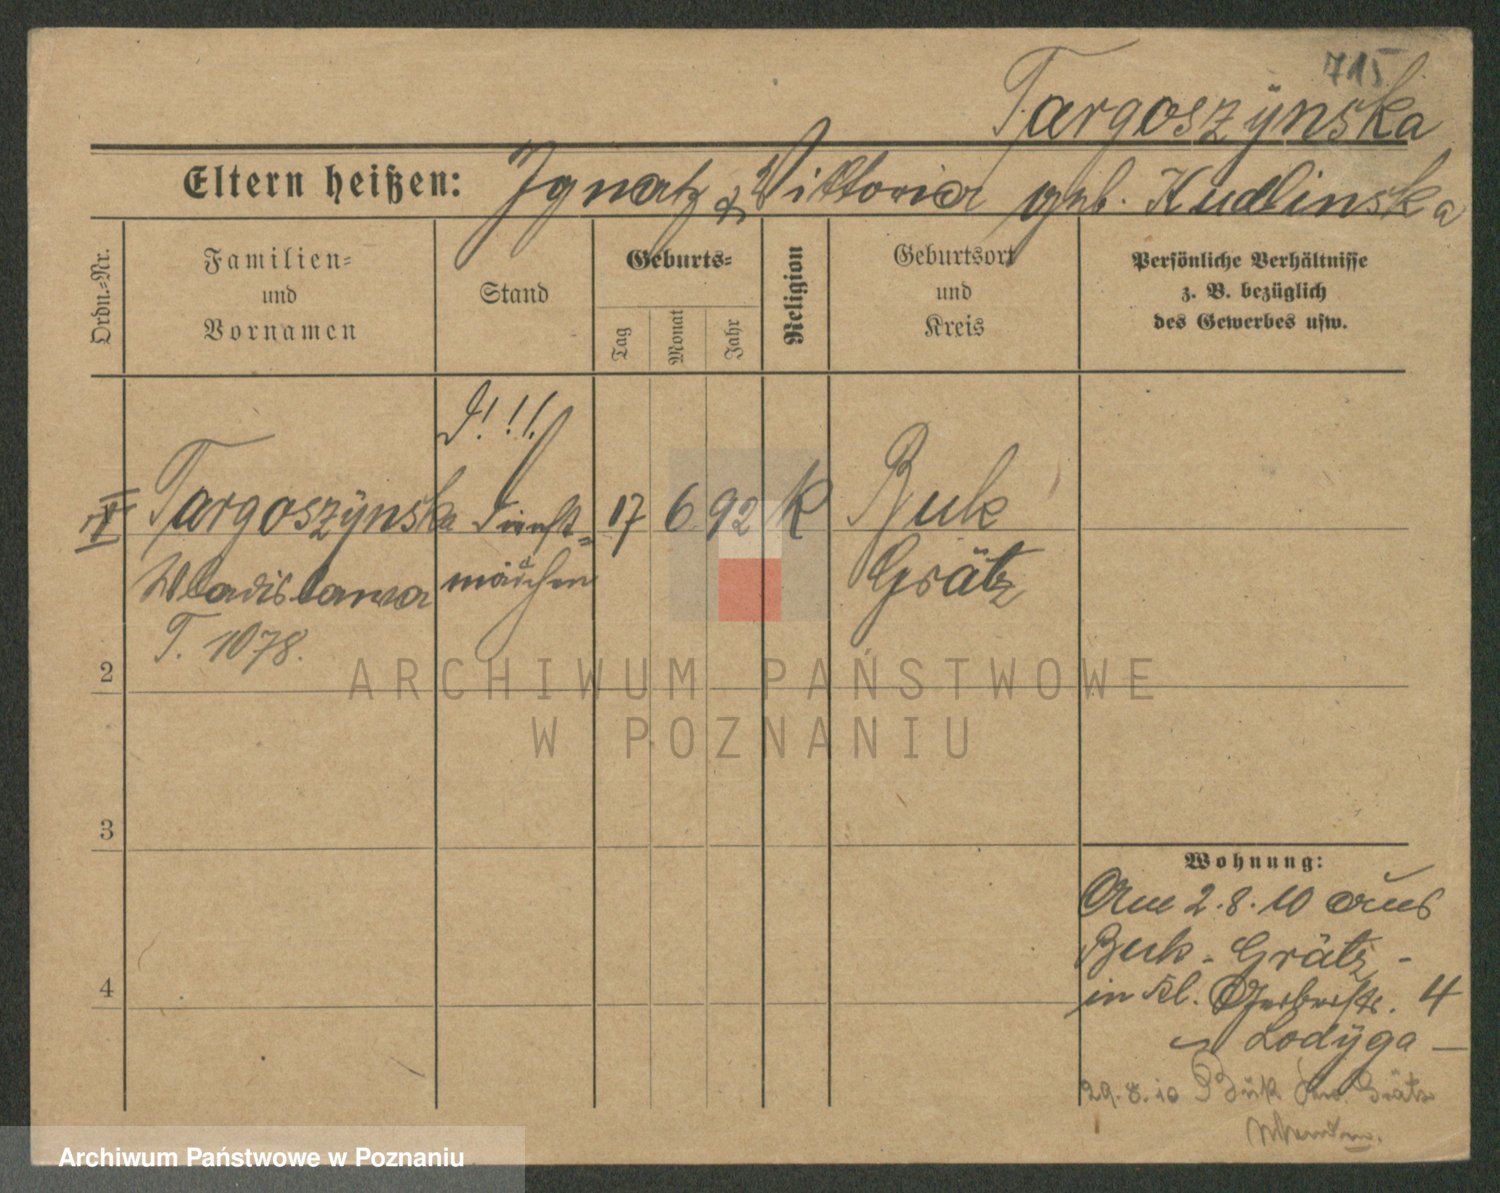 715
Targoszÿnska
Eltern heißen: Ignatz & Viktoria geb. Kudlinska
Ordn.-Nr.
Familien- und Vornamen
Stand
Geburts-
Tag
Monat
Jahr
Religion
Geburtsort und Kreis
Persönliche Verhältnisse
z. B. bezüglich
des Gewerbes usw.
Targoszÿnska Dienst- 17 6 92 K Buk
Wladislawa mädchen Grätz
T. 1078.
2
3
4
Wohnung:
Am 2.8.10 aus
Buk - Grätz -
in Kl. Gerberstr. 4
Lodÿga -
29.8.10 Buk Grätz
ARCHIWUM PAŃSTWOWE
W POZNANIU
Archiwum Państwowe w Poznaniu